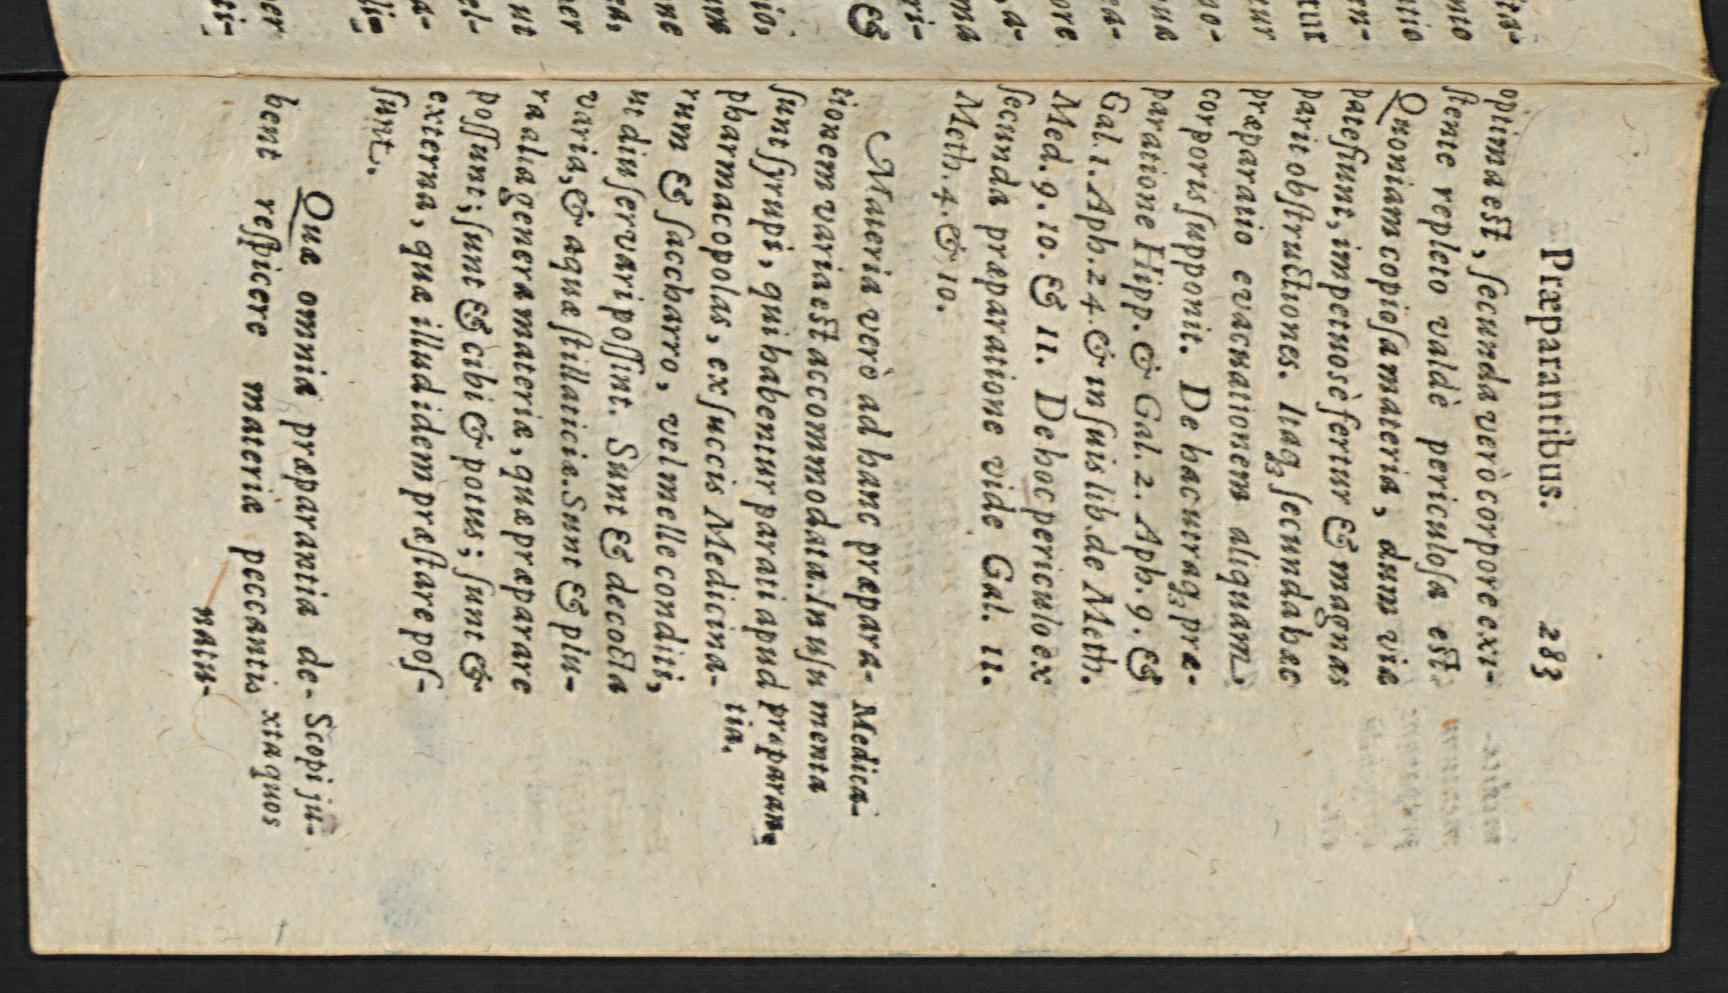 Præparantibus. 283
optima est, ſecunda verò corpore exi-
ſtente repleto valdè periculoſa est.
Quoniam copioſa materia, dum viæ
patefiunt, impetuosè fertur & magnas
parit obſtructiones. Itaq; ſecunda hæc
præparatio evacuationem aliquam
corporis ſupponit. De hac utraq; præ-
paratione Hipp. & Gal. 2. Aph. 9. &
Gal. 1. Aph. 24. & in ſuis lib. de Meth.
Med. 9. 10. & 11. De hoc periculo ex
ſecunda præparatione vide Gal. 11.
Meth. 4. & 10.
Materia verò ad hanc præpara-
tionem varia est accommodata. In uſu
ſunt ſyrupi, qui habentur parati apud
pharmacopolas, ex ſuccis Medicina-
rum & ſaccharro, vel melle conditi,
ut diu ſervari poſſint. Sunt & decocta
varia, & aquæ ſtillaticiæ. Sunt & plu-
ra alia genera materiæ, quæ præparare
poſſunt; ſunt & cibi & potus; ſunt &
externa, quæ illud idem præſtare poſ-
ſunt.
Medica-
menta
præparan-
tia.
Quæ omnia præparantia de-
bent reſpicere materiæ peccantis
natu-
Scopi ju-
xta quos